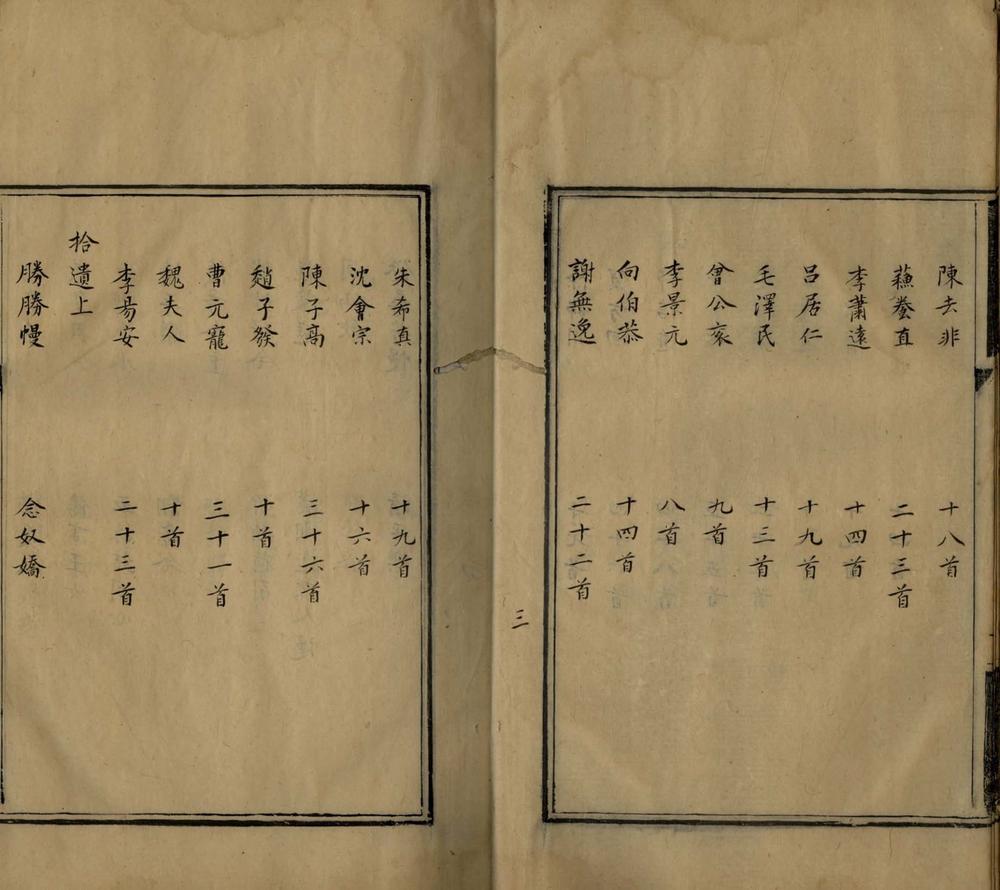 陳去非 十八首
蘓養直 二十三首
李蕭遠 十四首
呂居仁 十九首
毛澤民 十三首
曾公衮 九首
李景元 八首
向伯恭 十四首
謝無逸 二十二首
三
朱希真 十九首
沈會宗 十六首
陳子高 三十六首
趙子發 十首
曹元寵 三十一首
魏夫人 十首
李易安 二十三首
拾遺上
勝勝慢 念奴嬌